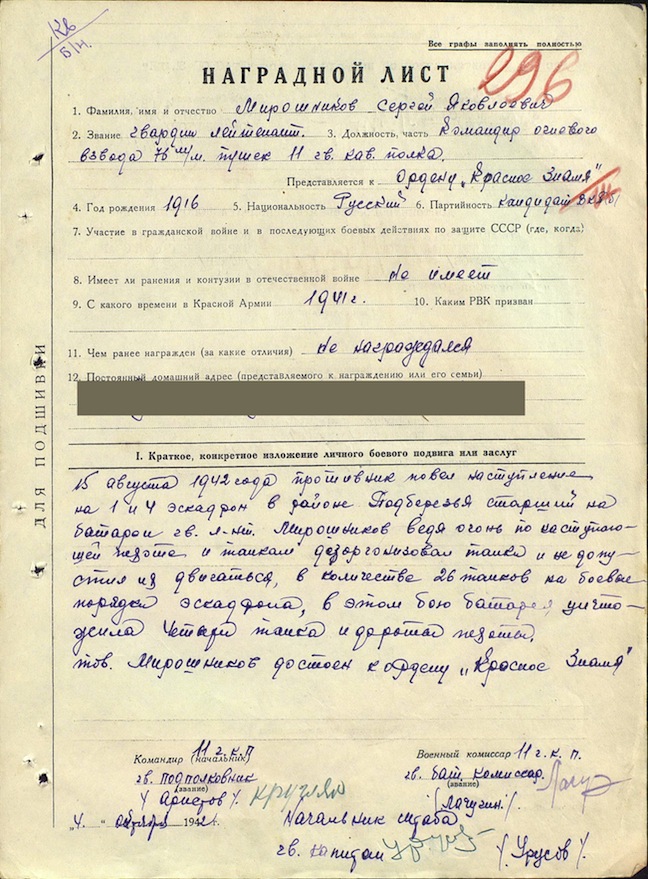 Кв
б/н.
Все графы заполнять полностью
296
НАГРАДНОЙ ЛИСТ
1. Фамилия, имя и отчество Мирошников Сергей Яковлевич
2. Звание гвардии лейтенант. 3. Должность, часть Командир огневого
взвода 76 м/м. пушек 11 гв. кав. полка.
Представляется к Ордену „Красное Знамя"
4. Год рождения 1916 5. Национальность Русский 6. Партийность Кандидат ВКП(б)
7. Участие в гражданской войне и в последующих боевых действиях по защите СССР (где, когда)
8. Имеет ли ранения и контузии в отечественной войне не имеет
9. С какого времени в Красной Армии 1941г. 10. Каким РВК призван
11. Чем ранее награжден (за какие отличия) не награждался
12. Постоянный домашний адрес (представляемого к награждению или его семьи)
ДЛЯ ПОДШИВКИ
I. Краткое, конкретное изложение личного боевого подвига или заслуг
15 августа 1942 года противник повел наступление
на 1 и 4 эскадрон в районе Подберезья старший на
батареи гв. л-нт. Мирошников ведя огонь по наступаю-
щей пехоте и танкам дезорганизовал танки и не допу-
стил их двигаться, в количестве 26 танков на боевые
порядки эскадрона, в этом бою батарея уничто-
жила четыре танка и до роты пехоты.
тов. Мирошников достоен к ордену „Красное Знамя"
Командир (начальник) 11 г.к.п Военный комиссар 11 г.к.п.
гв. подполковник гв. бат. комиссар.
(звание) (звание)
/Аристов/. /Лачугин/.
„4" октября 1942 г. Начальник штаба
гв. капитан /Урусов/.